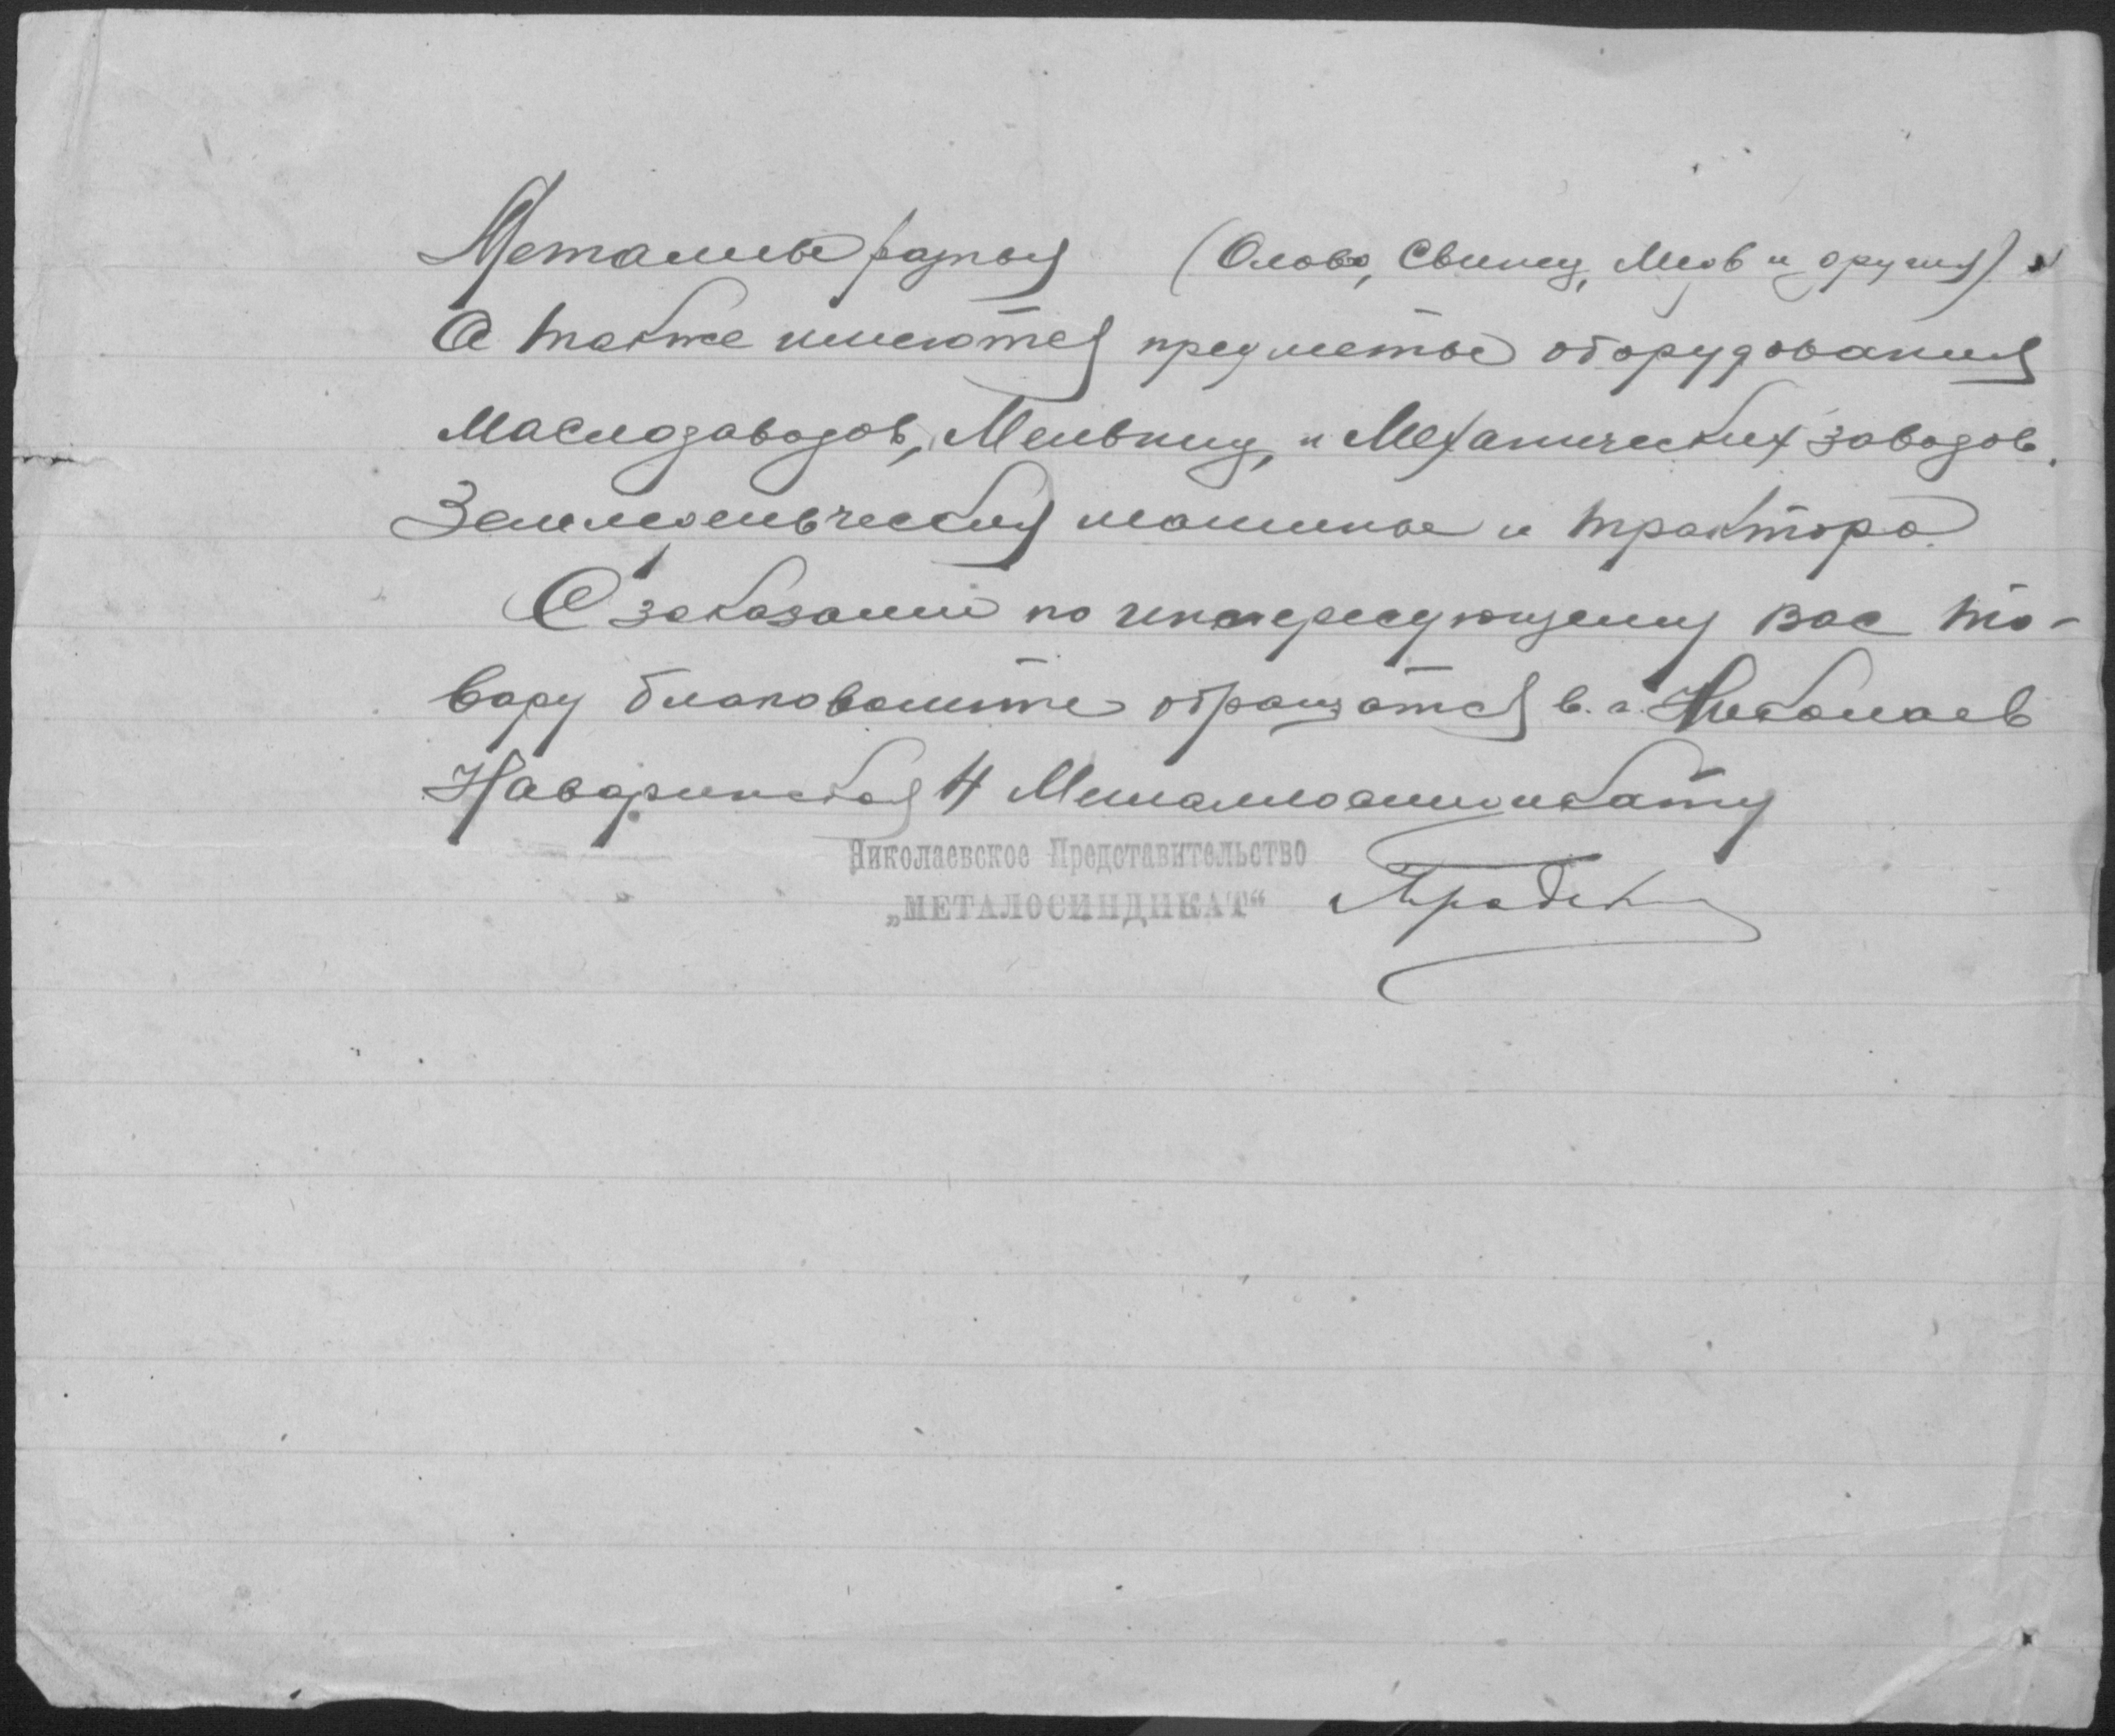 Металлы разныя (Олово, Свинец, Медь и другия) и
А также имеются предметы оборудования
Маслозаводов, Мельниц, и Механических заводов.
Земледельческия машины и трактора.
С заказами по интересующему вас то-
вару благоволите обращатся в. г. Николаев
Наваринская 4 Металлосиндикату
Николаевское Представительство
„МЕТАЛОСИНДИКАТ“